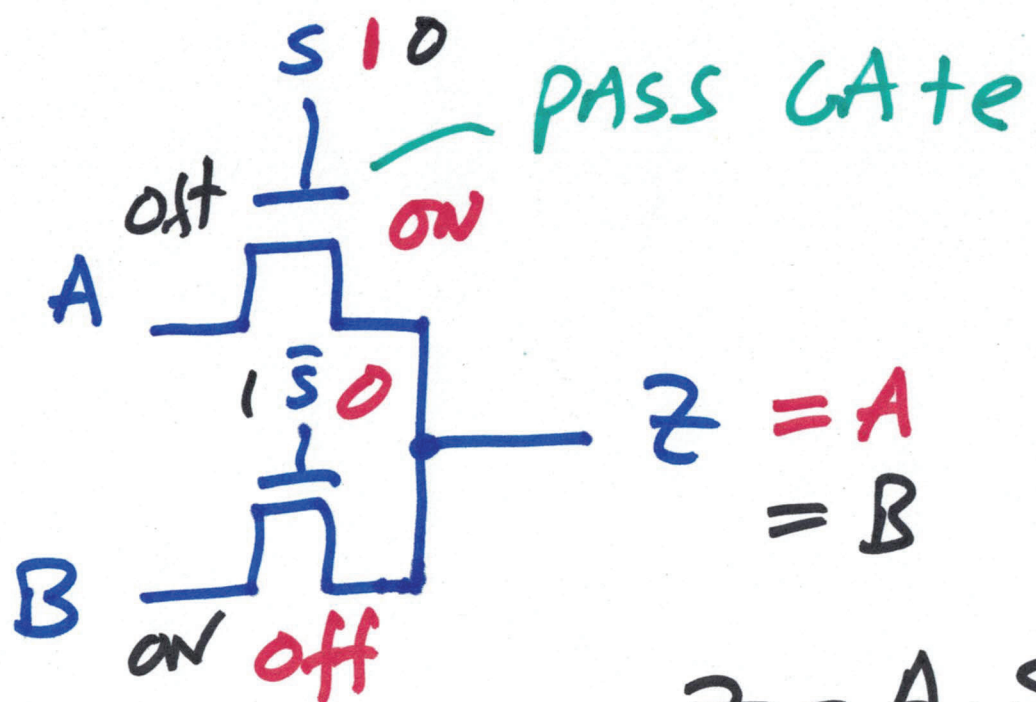 S 1 0
PASS GAte
Off
ON
A
1 S̅ 0
Z = A
= B
B
ON Off